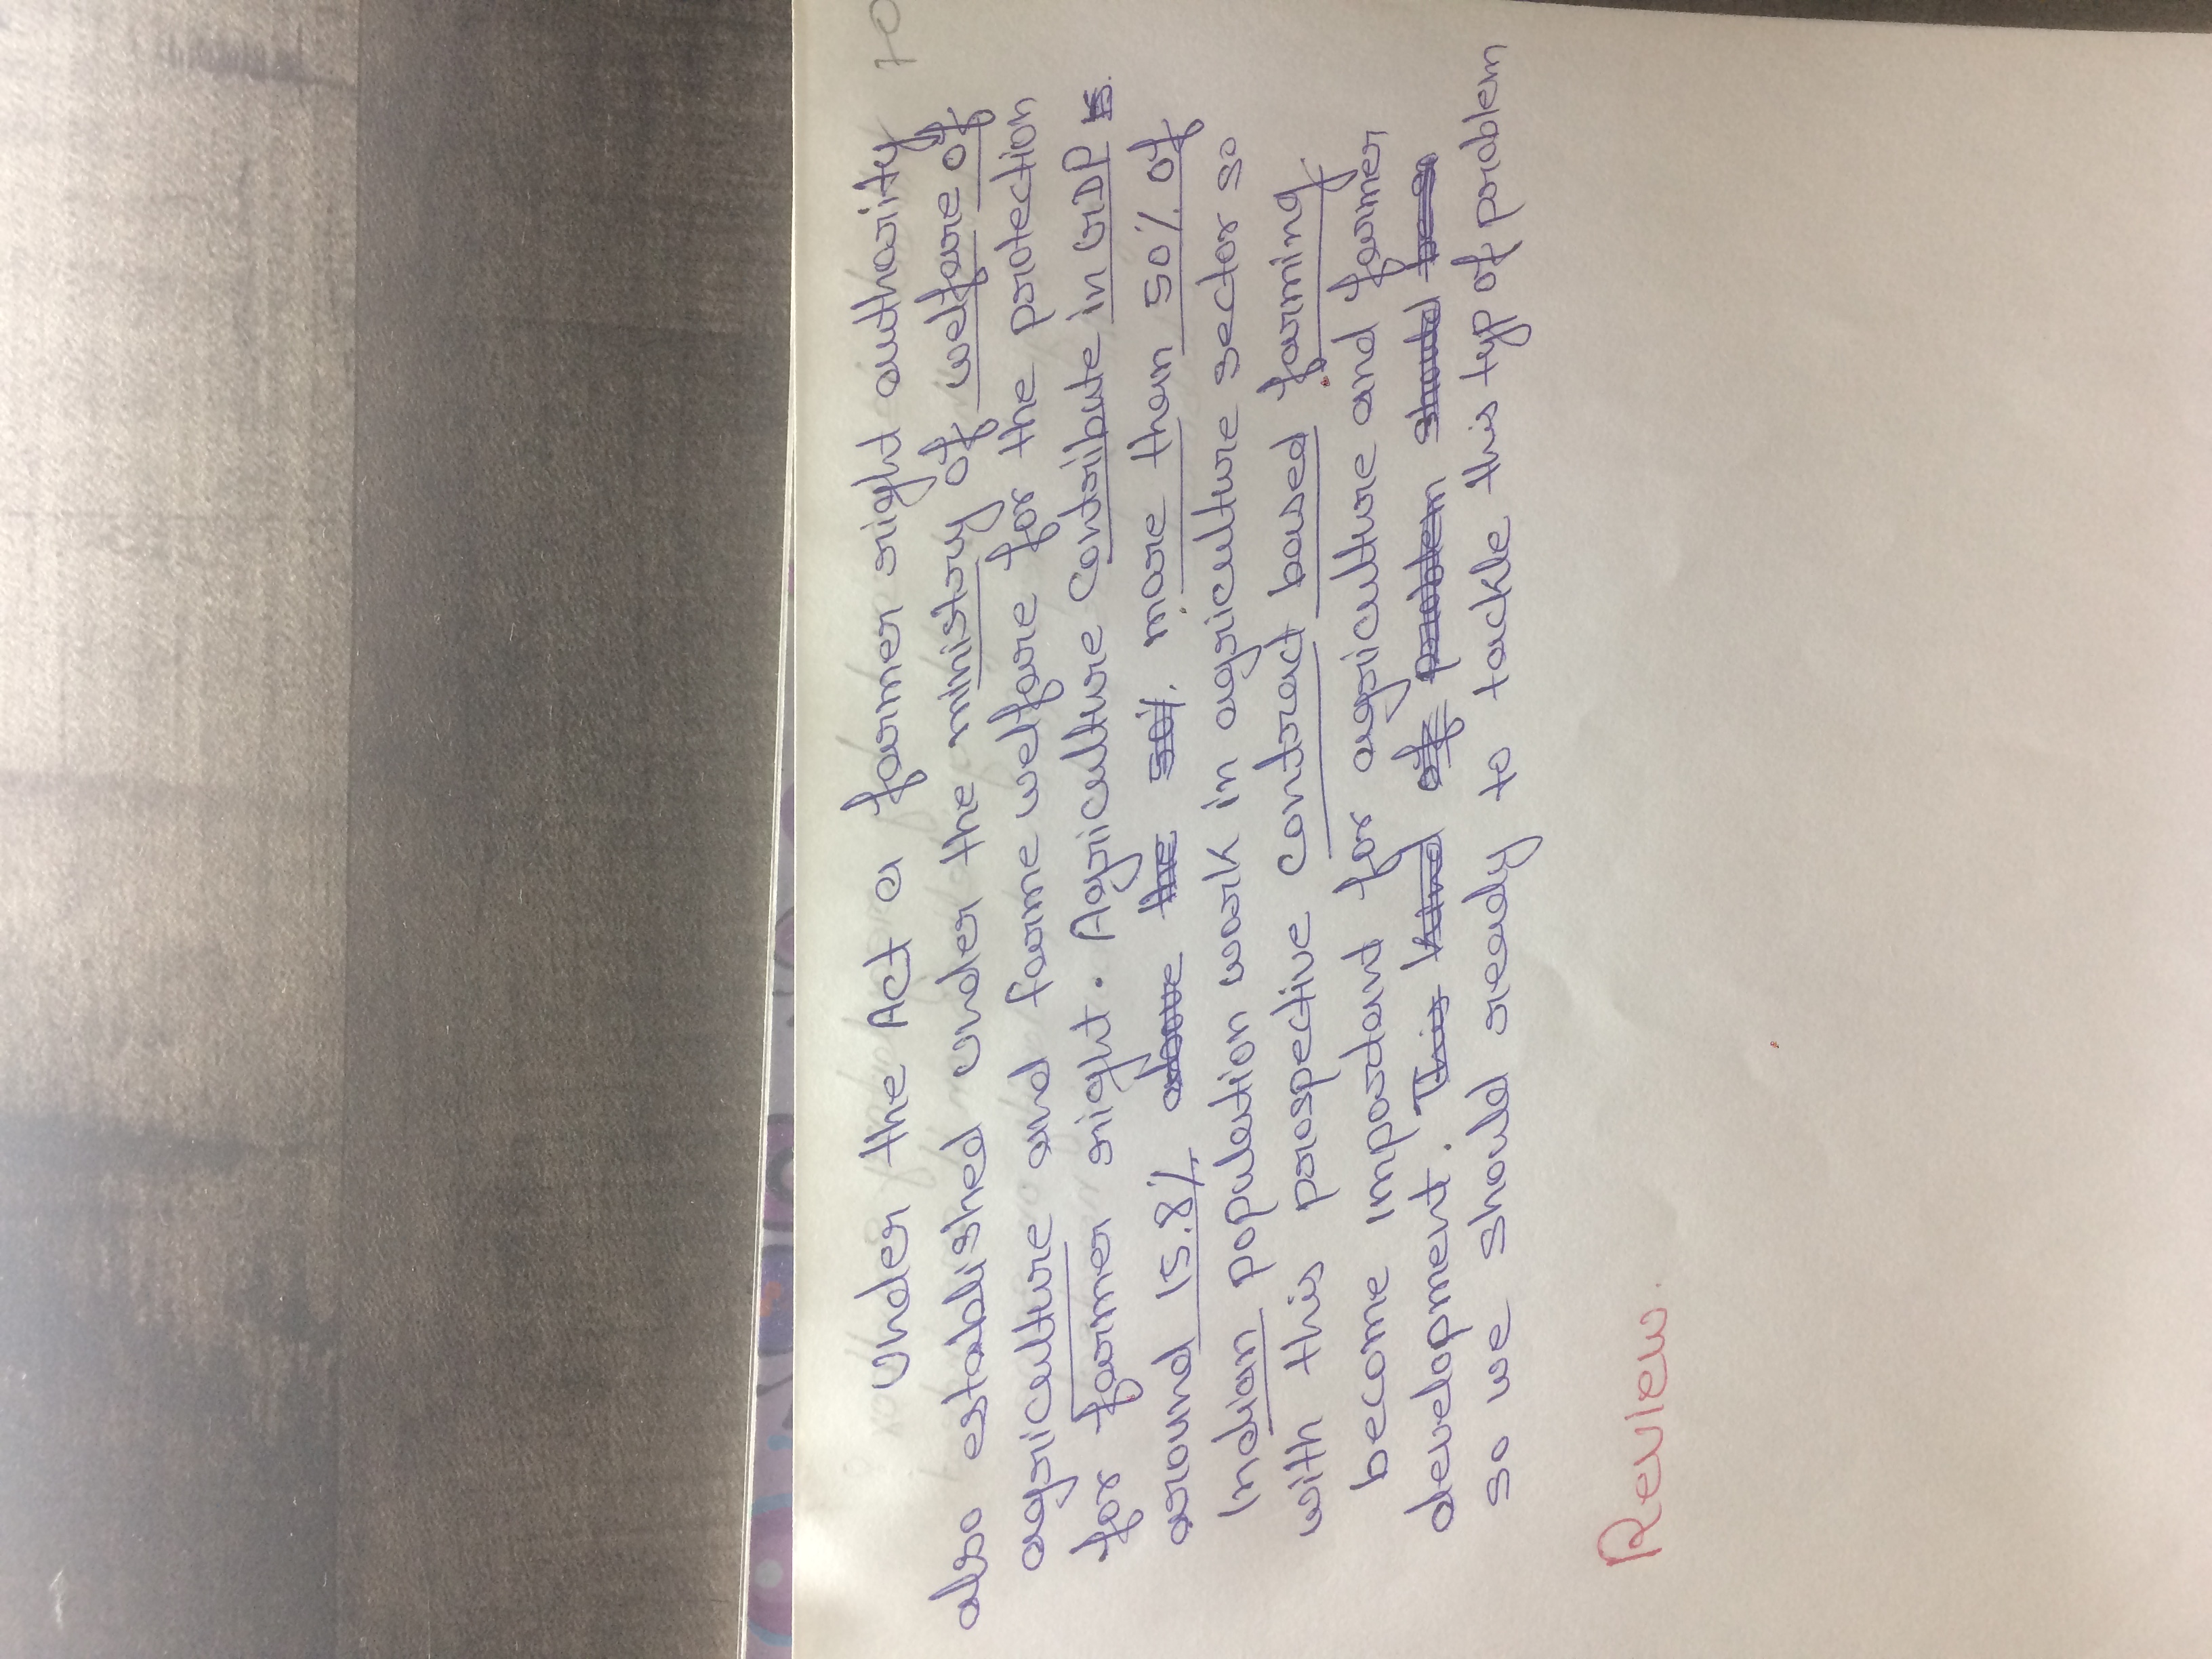 70
Under the Act a farmer right authority
also established under the ministry of welfare of
agriculture and farme welfare for the protection
for farmer right. Agriculture contribute in GDP is
around 15.8% above the 50%. more than 50% of
Indian population work in agriculture sector so
with this prospective contract based farming
become important for agriculture and farmer
development. This kind of problem should be
so we should ready to tackle this typ of problem
Review.